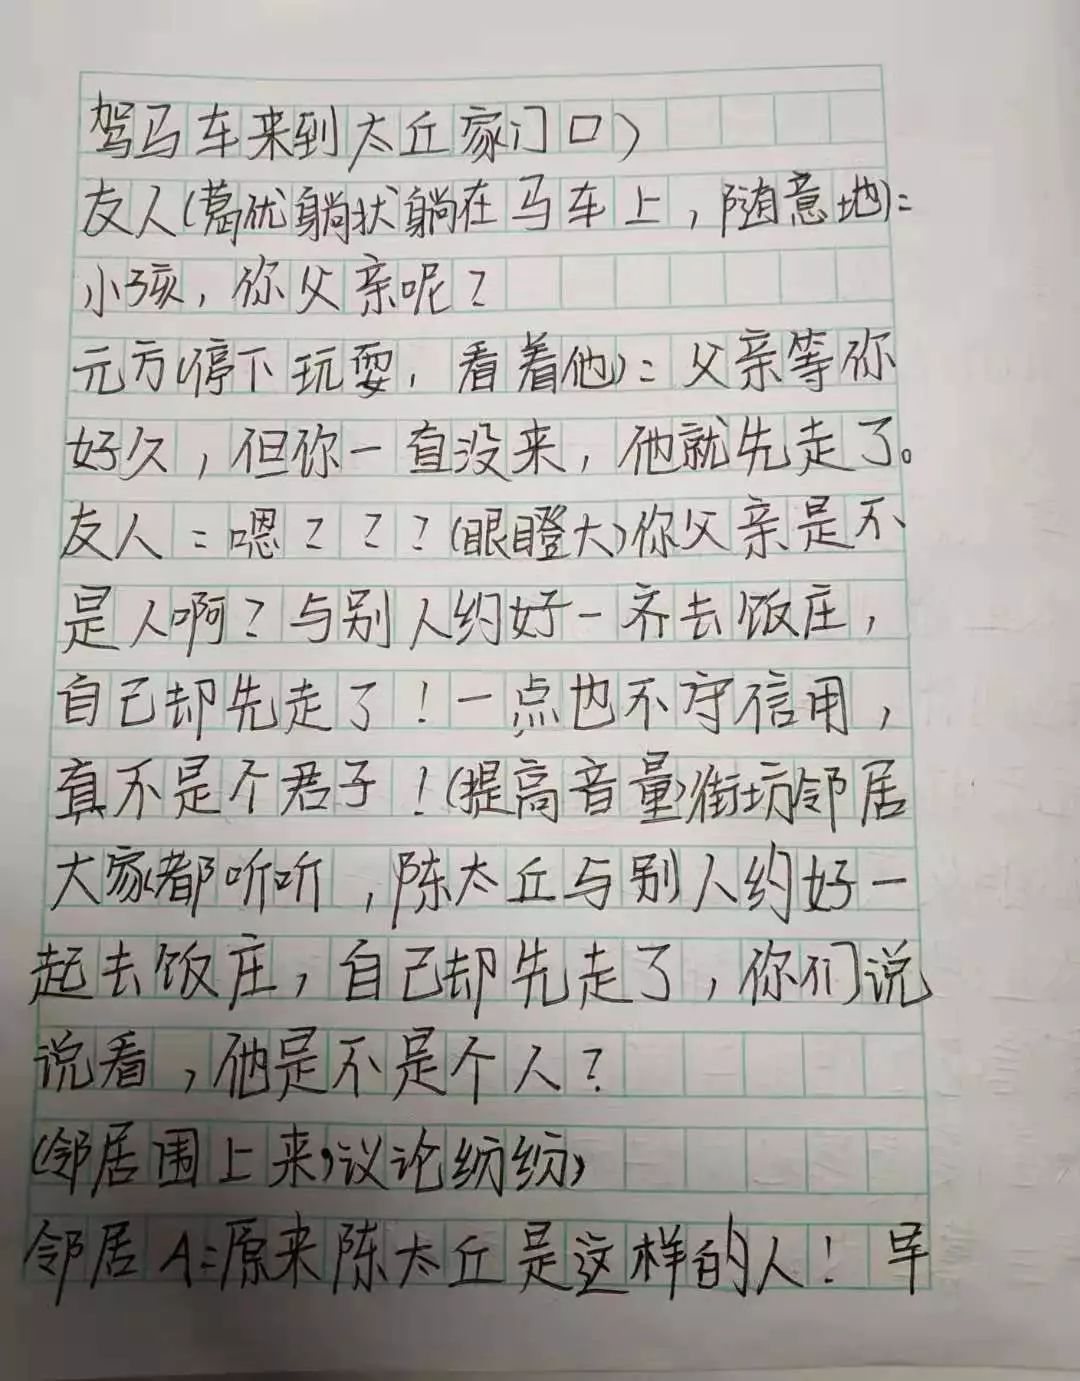 驾马车来到太丘家门口)
友人(葛优躺状躺在马车上,随意地):
小孩,你父亲呢?
元方(停下玩耍,看着他):父亲等你
好久,但你一直没来,他就先走了。
友人:嗯???(眼瞪大)你父亲是不
是人啊?与别人约好一齐去饭庄,
自己却先走了!一点也不守信用,
真不是个君子!(提高音量)街坊邻居
大家都听听,陈太丘与别人约好一
起去饭庄,自己却先走了,你们说
说看,他是不是个人?
(邻居围上来,议论纷纷)
邻居A:原来陈太丘是这样的人!早